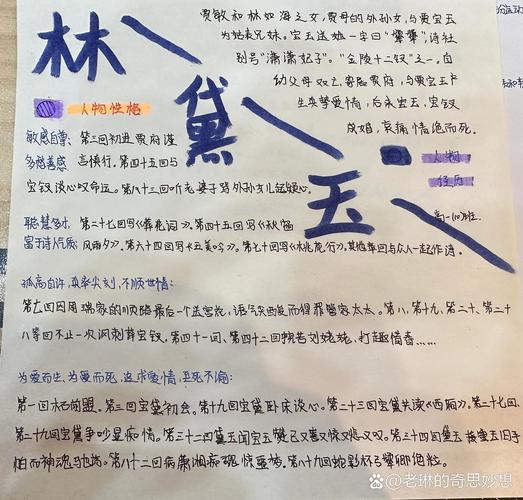 林黛玉
贾敏和林如海之女,贾母的外孙女,与贾宝玉
为姑表兄妹。宝玉送她一字曰“颦颦”,诗社
别号“潇潇妃子”。“金陵十二钗”之一,自
幼父母双亡,寄居贾府,与贾宝玉产
生真挚爱情,后永宝玉,宝钗
成婚,哀痛情绝而死。
人物性格
人物
经历
高一(10)班.
敏感自尊、第三回初进贾府谨
多愁善感 言慎行。第四十五回与
宝钗谈心叹命运。第八十三回听老婆子骂外孙女儿起疑心。
聪慧多才、第二十七回写《葬花词》。第四十五回写《秋窗
富于诗人气质:风雨夕》。第六十四回写《五美吟》。第七十回写《桃花行》。其他章回与众人一起作诗。
孤高自许、率真尖刻、不顺世情:
第七回因周瑞家的顺路最后一个送宫花,语气尖酸而得罪管家太太。第八、第十九、第二十、第二十
八等回不止一次讽刺薛宝钗。第四十一回、第四十二回挽苦刘姥姥,打趣惜春……
为爱而生、为爱而死、追求爱情,至死不渝:
第一回木石前盟。第三回宝黛初会。第十九回宝黛卧床谈心。第二十三回宝黛共读《西厢》。第二十七回、
第二十九回宝黛争吵显痴情。第三十二回黛玉闻宝玉赞己又喜又惊又悲又叹。第三十四回黛玉接宝玉旧手
怕而神魂驰荡。第八十二回病潇湘痴魂惊噩梦。第八十九回蛇影杯弓颦卿绝粒。
@老琳的奇思妙想